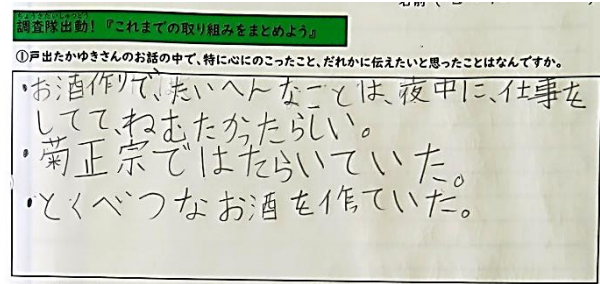 ちょうさたいしゅつどう
調査隊出動!『これまでの取り組みをまとめよう』
①戸出たかゆきさんのお話の中で、特に心にのこったこと、だれかに伝えたいと思ったことはなんですか。
・お酒作りで、たいへんなことは、夜中に、仕事を
してて、ねむたかったらしい。
・菊正宗ではたらいていた。
・とくべつなお酒を作ていた。